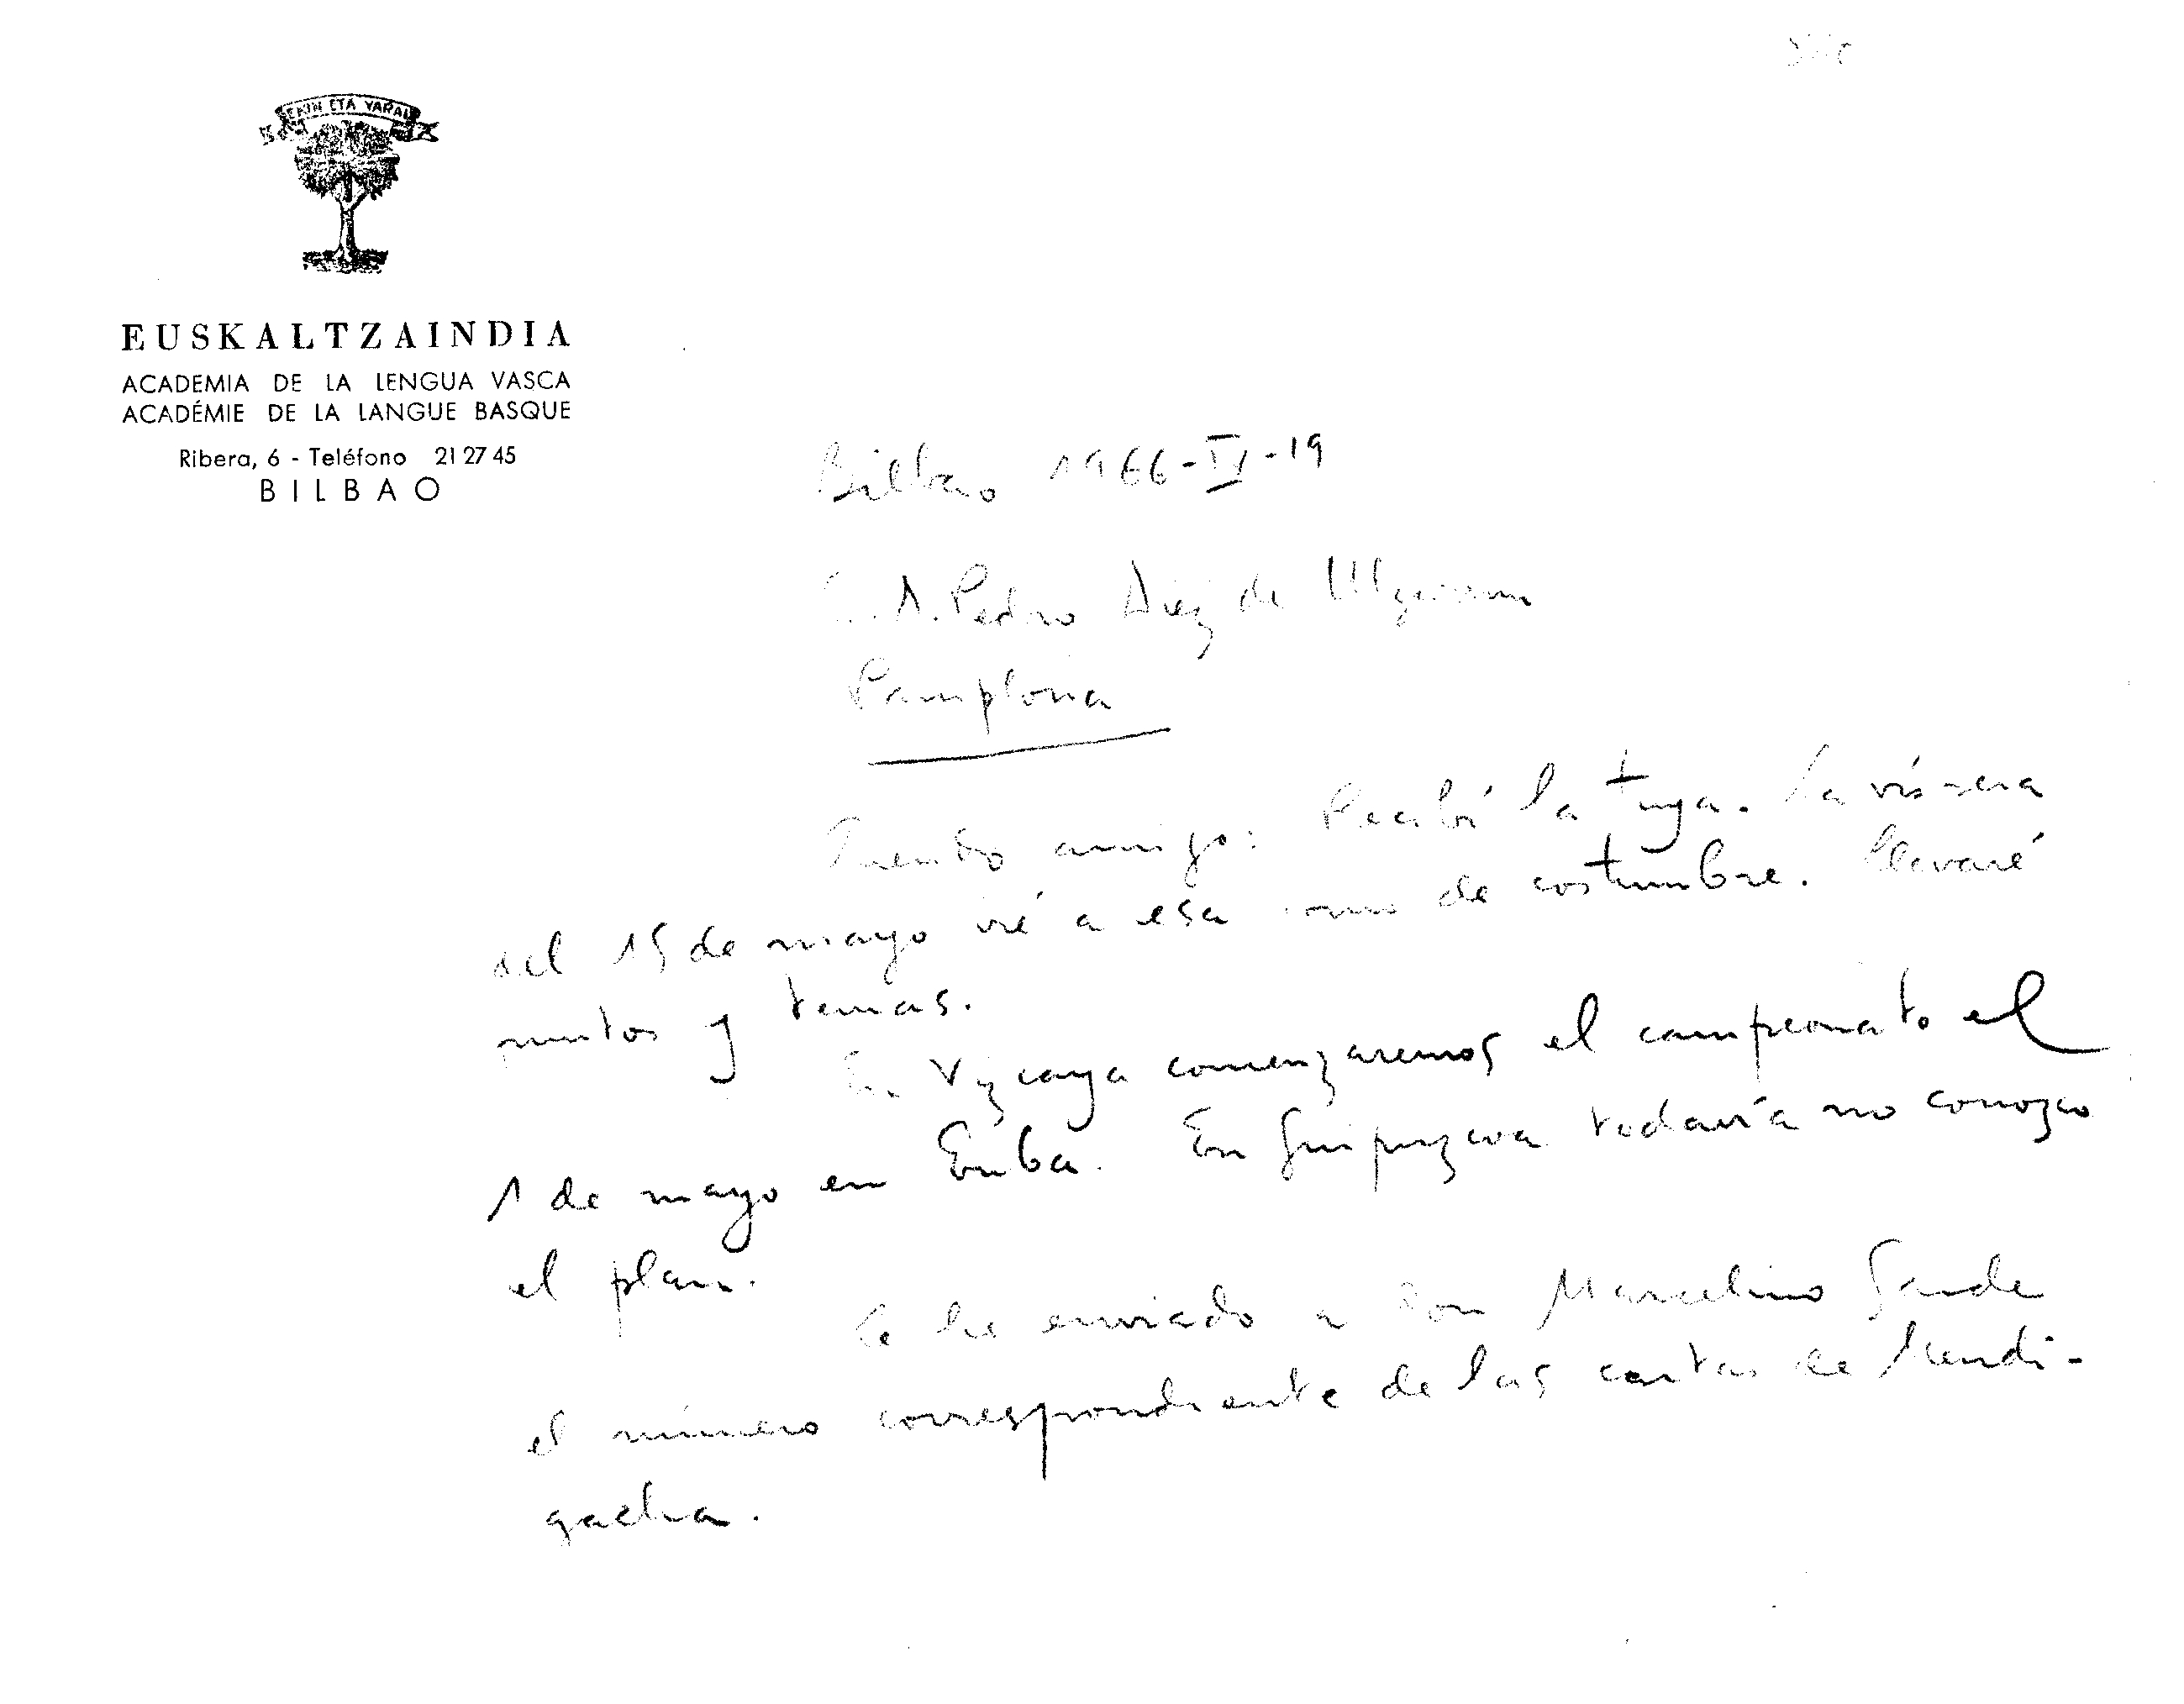 EKIN ETA YARAI
EUSKALTZAINDIA
ACADEMIA DE LA LENGUA VASCA
ACADÉMIE DE LA LANGUE BASQUE
Ribera, 6 - Teléfono 21 27 45
BILBAO
Bilbao 1966-IV-19
D. Pedro Diez de Ulzurrun
Pamplona
amigo: Recibí la tuya. La víspera
del 15 de mayo iré a esa como de costumbre. Llevaré
puntos y temas.
En Vizcaya comenzaremos el campeonato el
1 de mayo en Euba. En Guipuzcoa todavía no conozco
el plan.
Le he enviado a Don Marcelino Garde
el número correspondiente de las cartas de Mendi-
gacha.